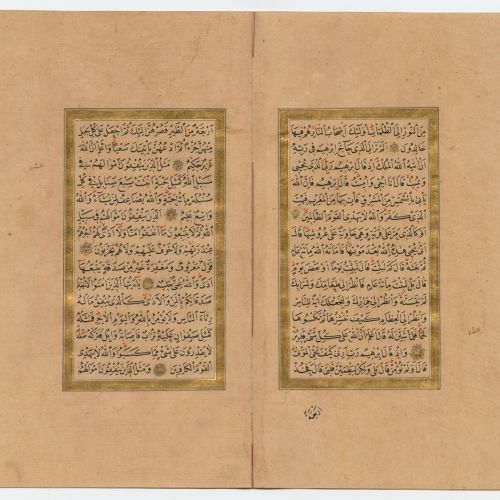 مِنَ النُّورِ اِلَى الظُّلُمَاتِ اُولٰئِكَ اَصْحَابُ النَّارِ هُمْ فِيهَا
خَالِدُونَ اَلَمْ تَرَ اِلَى الَّذِي حَاجَّ اِبْرٰهِيمَ فِي رَبِّهِ
اَنْ اٰتٰيهُ اللهُ الْمُلْكَ اِذْ قَالَ اِبْرٰهِيمُ رَبِّيَ الَّذِي يُحْيِي
وَيُمِيتُ قَالَ اَنَا اُحْيِي وَاُمِيتُ قَالَ اِبْرٰهِيمُ فَاِنَّ اللهَ
يَاْتِي بِالشَّمْسِ مِنَ الْمَشْرِقِ فَاْتِ بِهَا مِنَ الْمَغْرِبِ فَبُهِتَ
الَّذِي كَفَرَ وَاللهُ لَا يَهْدِي الْقَوْمَ الظَّالِمِينَ
اَوْ كَالَّذِي مَرَّ عَلٰى قَرْيَةٍ وَهِيَ خَاوِيَةٌ عَلٰى عُرُوشِهَا قَالَ
اَنّٰى يُحْيِي هٰذِهِ اللهُ بَعْدَ مَوْتِهَا فَاَمَاتَهُ اللهُ مِائَةَ عَامٍ
ثُمَّ بَعَثَهُ قَالَ كَمْ لَبِثْتَ قَالَ لَبِثْتُ يَوْمًا اَوْ بَعْضَ يَوْمٍ
قَالَ بَلْ لَبِثْتَ مِائَةَ عَامٍ فَانْظُرْ اِلٰى طَعَامِكَ وَشَرَابِكَ
لَمْ يَتَسَنَّهْ وَانْظُرْ اِلٰى حِمَارِكَ وَلِنَجْعَلَكَ اٰيَةً لِلنَّاسِ
وَانْظُرْ اِلَى الْعِظَامِ كَيْفَ نُنْشِزُهَا ثُمَّ نَكْسُوهَا
لَحْمًا فَلَمَّا تَبَيَّنَ لَهُ قَالَ اَعْلَمُ اَنَّ اللهَ عَلٰى كُلِّ شَيْءٍ قَدِيرٌ
وَاِذْ قَالَ اِبْرٰهِيمُ رَبِّ اَرِنِي كَيْفَ تُحْيِي الْمَوْتٰى
قَالَ اَوَلَمْ تُؤْمِنْ قَالَ بَلٰى وَلٰكِنْ لِيَطْمَئِنَّ قَلْبِي قَالَ فَخُذْ
اربعة
اَرْبَعَةً مِنَ الطَّيْرِ فَصُرْهُنَّ اِلَيْكَ ثُمَّ اجْعَلْ عَلٰى كُلِّ جَبَلٍ
مِنْهُنَّ جُزْءًا ثُمَّ ادْعُهُنَّ يَاْتِينَكَ سَعْيًا وَاعْلَمْ اَنَّ اللهَ
عَزِيزٌ حَكِيمٌ مَثَلُ الَّذِينَ يُنْفِقُونَ اَمْوَالَهُمْ فِي
سَبِيلِ اللهِ كَمَثَلِ حَبَّةٍ اَنْبَتَتْ سَبْعَ سَنَابِلَ فِي كُلِّ
سُنْبُلَةٍ مِائَةُ حَبَّةٍ وَاللهُ يُضَاعِفُ لِمَنْ يَشَاءُ وَاللهُ
وَاسِعٌ عَلِيمٌ اَلَّذِينَ يُنْفِقُونَ اَمْوَالَهُمْ فِي سَبِيلِ
اللهِ ثُمَّ لَا يُتْبِعُونَ مَا اَنْفَقُوا مَنًّا وَلَا اَذًى لَهُمْ اَجْرُهُمْ
عِنْدَ رَبِّهِمْ وَلَا خَوْفٌ عَلَيْهِمْ وَلَا هُمْ يَحْزَنُونَ
قَوْلٌ مَعْرُوفٌ وَمَغْفِرَةٌ خَيْرٌ مِنْ صَدَقَةٍ يَتْبَعُهَا
اَذًى وَاللهُ غَنِيٌّ حَلِيمٌ يَا اَيُّهَا الَّذِينَ اٰمَنُوا لَا تُبْطِلُوا
صَدَقَاتِكُمْ بِالْمَنِّ وَالْاَذٰى كَالَّذِي يُنْفِقُ مَالَهُ
رِئَاءَ النَّاسِ وَلَا يُؤْمِنُ بِاللهِ وَالْيَوْمِ الْاٰخِرِ فَمَثَلُهُ
كَمَثَلِ صَفْوَانٍ عَلَيْهِ تُرَابٌ فَاَصَابَهُ وَابِلٌ فَتَرَكَهُ صَلْدًا
لَا يَقْدِرُونَ عَلٰى شَيْءٍ مِمَّا كَسَبُوا وَاللهُ لَا يَهْدِي
الْقَوْمَ الْكَافِرِينَ وَمَثَلُ الَّذِينَ يُنْفِقُونَ اَمْوَالَهُمُ